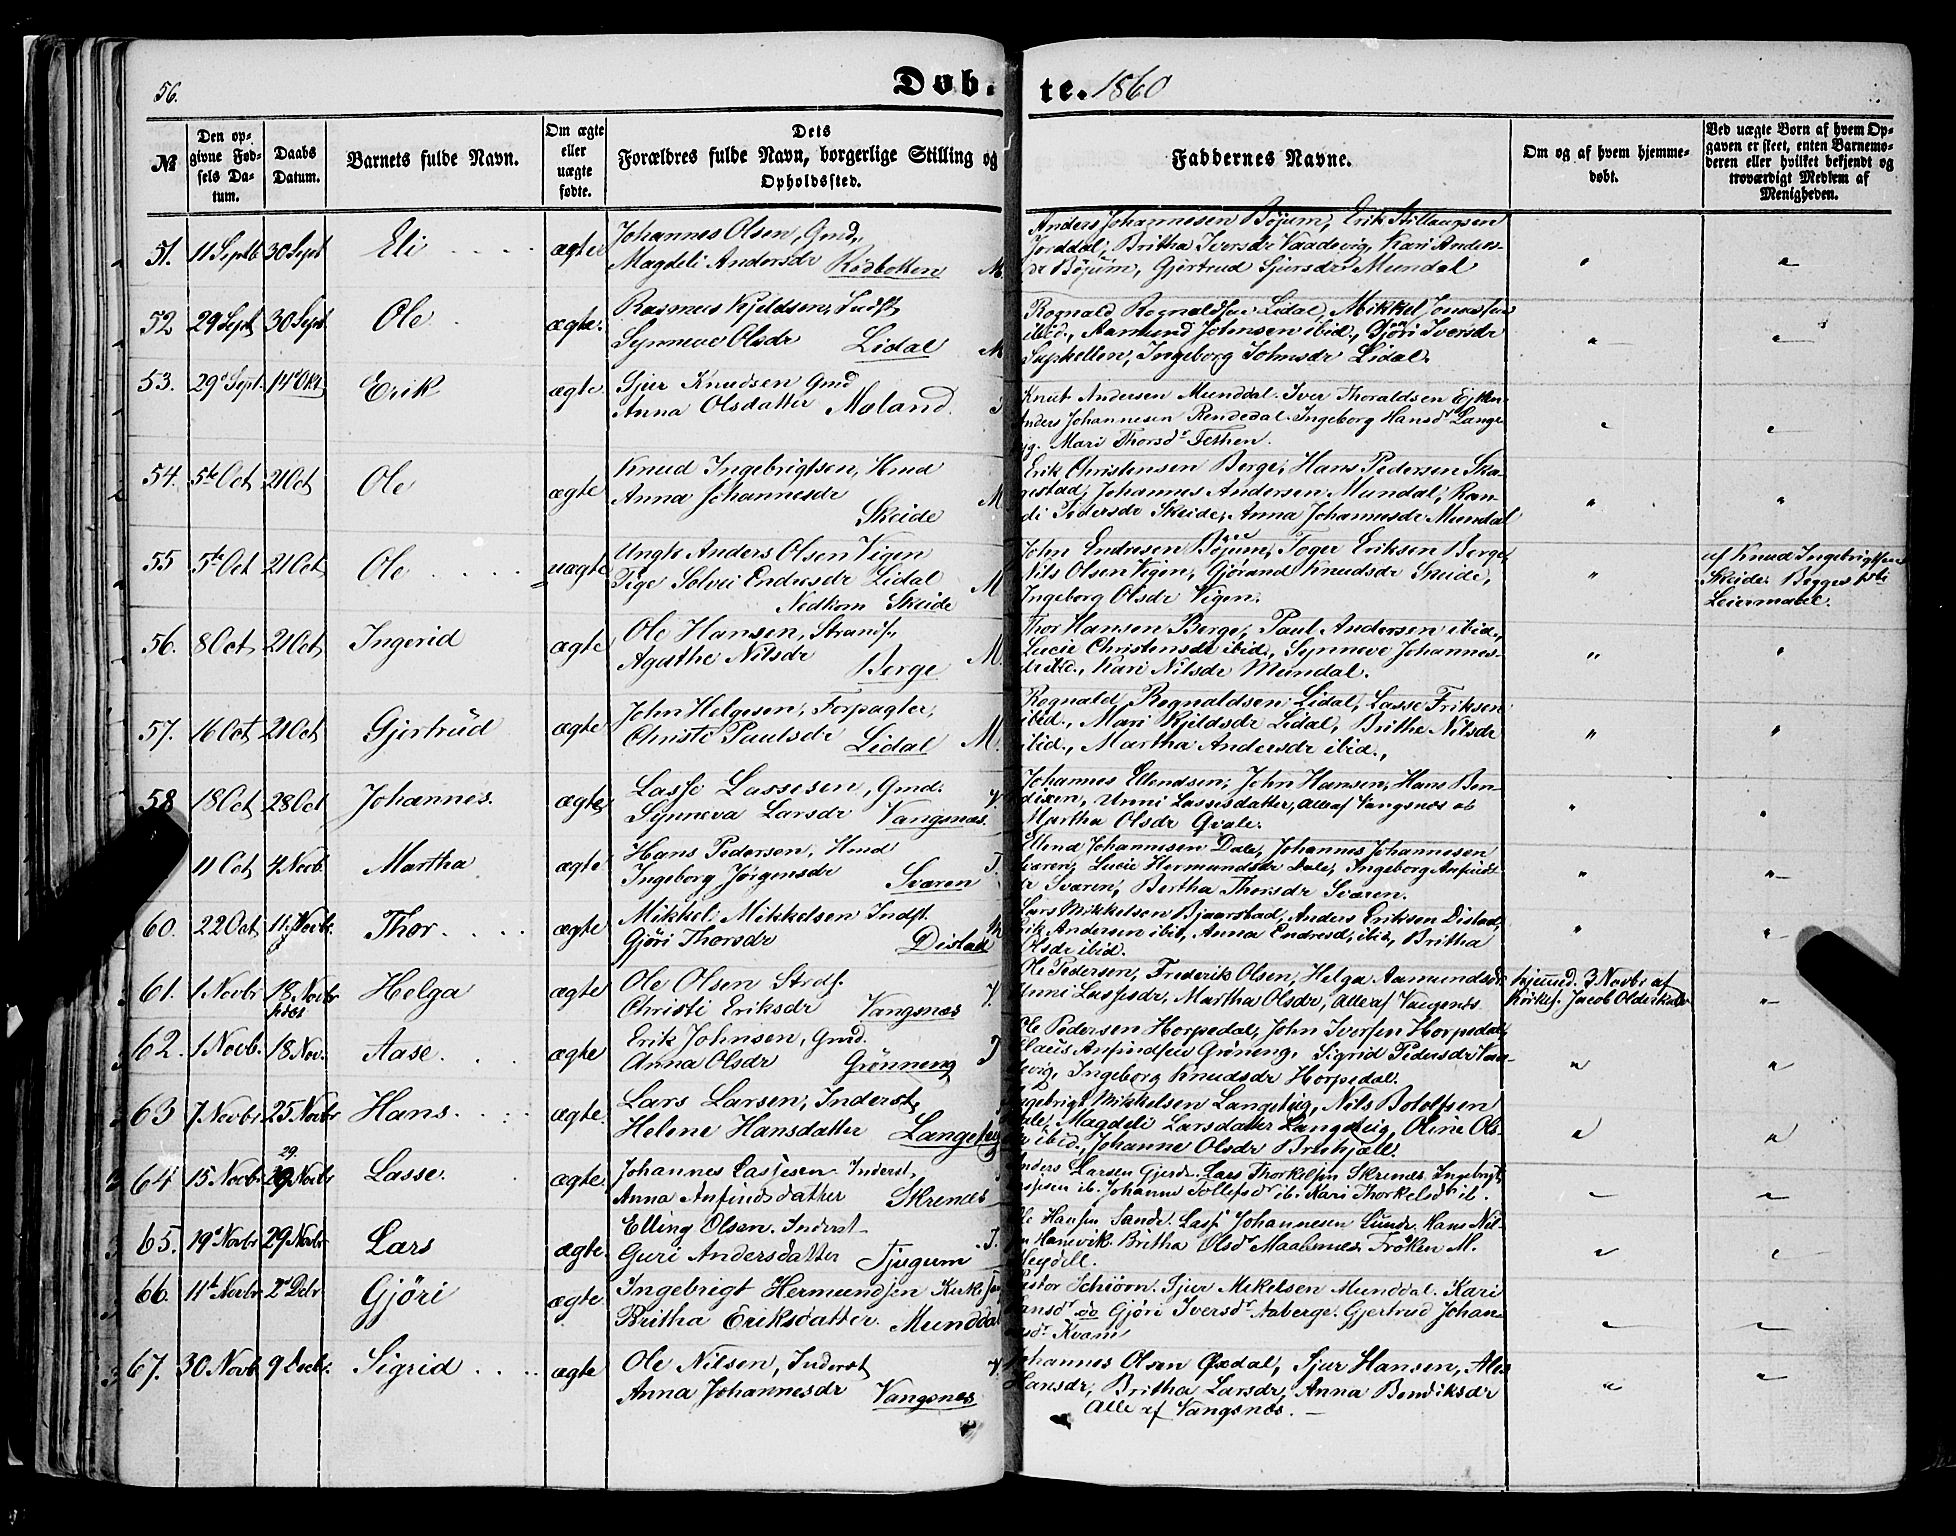 56.
Døb.
te. 1860
№
Den op-
givne Fød-
sels Da-
tum.
Daabs
Datum.
Barnets fulde Navn.
Om ægte
eller
uægte
fødte.
Dets
Forældres fulde Navn, borgerlige Stilling og
Opholdssted.
Faddernes Navne.
Om og af hvem hjemme-
døbt.
Ved uægte Børn af hvem Op-
gaven er skeet, enten Barnemo-
deren eller hvilket bekjendt og
troværdigt Medlem af
Menigheden.
51. 11 Septb 30 Sept Eli ægte
Johannes Olsen, Gmd,
Magdeli Andersdr Rødbotten M
Anders Johannesen Bøjum, Erik
Jorddal, Britha Iversdr Vaadevig, Kari Anders-
dr Bøjum, Gjertrud Sjursdr Mundal
52 29 Sept 30 Sept Ole ægte.
Rasmus Kjeldsen, Indst
Synneve Olsdr Lidal M
Rognald Rognaldsen Lidal, Mikkel Jonassen
ibid., Aamund Johnsen ibid., Gjøri Iversdr
Suphellen, Ingeborg Johnsdr Lidal.
53. 29d Sept. 14d Okt Erik ægte.
Sjur Knudsen Gmd
Anna Olsdatter Moland.
Knut Andersen Munddal. Iver Thoraldsen
Anders Johannesen Rendedal. Ingeborg Hansdr Lange
ig. Mari Thorsdr Fethen.
54. 5te Oct 21 Oct Ole ægte
Knud Ingebrigtsen, Hmd
Anna Johannesdr
Skeide M
Erik Christensen Berge, Hans Pedersen Ska-
gestad, Johannes Andersen Mundal, Ran-
di Pedersdr Skeide, Anna Johannesdr Mundal
55 5te Oct 21 Oct Ole uægte
Ungk Anders Olsen Vigen
Pige Solvei Endresdr Lidal
Nedkom Skeide M
John Endresen Bøjum, Toger Eriksen Berge,
Nils Olsen Vigen, Gjørand Knudsdr Skeide,
Ingeborg Olsdr Vigen.
af Knud Ingebrigtsen
Skeide. Begges 1ste
Leiermaal.
56. 8 Oct 21 Oct Ingerid ægte
Ole Hansen, Strands,
Agathe Nilsdr
Berge M.
Thor Hansen Berge, Paul Andersen ibid.,
Lucie Christensdr ibid., Synneve Johannes-
dr ibid., Kari Nilsdr Mundal.
57. 16 Oct 21 Oct Gjertrud ægte
John Helgesen, Forpagter,
Christi Paulsdr Lidal M.
Rognald Rognaldsen Lidal, Lasse Eriksen
ibid., Mari Kjeldsdr Lidal, Brithe Nilsdr
ibid., Martha Andersdr ibid.,
58 18 Oct 28 Oct Johannes. ægte
Lasse Lassesen, Gmd.
Synneva Larsdr Vangsnæs. V.
Johannes Ellendsen, John Hansen, Hans Ben-
dixen, Unni Lassesdatter, Alle af Vangsnæs et
Martha Olsdr Qvale.
11 Oct 4 Novb. Martha ægte
Hans Pedersen, Hmd
Ingeborg Jørgensdr Sværen T.
Ellend Johannesen Dale, Johannes Johannesen
Sværen, Lucie Hermundsdr Dale, Ingeborg Anfinds
dr Sværen, Bertha Thorsdr Sværen.
60. 22 Oct 11 Novbr. Thor. ægte
Mikkel Mikkelsen Indst.
Gjøri Thorsdr Distad
Lars Mikkelsen Bjaarstad, Anders Eriksen Distad,
Erik Andersen ibid, Anna Endresd, ibid, Britha
Olsdr ibid.
61. 1 Novbr 18 Novbr Helga ægte
Ole Olsen Strds.
Christi Eriksdr Vangsnæs V.
Ole Pedersen, Frederik Olsen, Helga Aamundsdr
Unni Lassesdr, Martha Olsdr, Alle af Vangsnæs
hjemmd. 3 Novbr af
Kirkes. Jacob
62. 1 Novb. 18 Nov. Aase. ægte
Erik Johnsen, Gmd.
Anna Olsdr Grønneng T
Ole Pedersen Horpedal, John Iversen Horpedal,
Claus Anfindsen Grøneng, Sigrid Pedersdr Vaa-
devig, Ingeborg Knudsdr Horpedal.
63 7 Novbr 25 Novbr Hans. ægte.
Lars Larsen, Inderst,
Helene Hansdatter Langeteig
Ingebrigt Mikkelsen Langeteig, Nils Botolfsen
Magdeli Larsdatter Langeteig, Oline Ols-
dr ibid, Johanne Olsdr
64 15 Novbr 29. Novbr Lasse. ægte.
Johannes Lassesen Inderst,
Anna Anfindsdatter Skrenes
Anders Larsen Gjerde. Lars Thorkelsen Skrenes, Ingebrigt
ib. Johanne Tollefsdr ib. Kari Thorkelsdr ib.
65. 19d Novbr 29 Novbr Lars ægte.
Elling Olsen. Inderst
Guri Andersdatter Tjugum T.
Ole Hansen Sande. Lasse Johannesen Lunde. Hans Nil-
sen Hamrvik. Britha Olsdr Maalsnes. Frøken M.
Heydell.
66. 11t Novbr 2d Debr Gjøri ægte.
Ingebrigt Hermundsen Kirkes.
Britha Eriksdatter. Munddal
Pastor Schiørn. Sjur Mikelsen Munddal. Kari
Hansdr do Gjøri Iversdr Aaberge. Gjertrud Johan-
nesdr Kvam
67. 30 Novb 9 Decbr. Sigrid ægte
Ole Nilsen, Inderst
Anna Johannesdr Vangsnæs V.
Johannes Olsen Oxedal, Sjur Hansen,
Hansdr, Britha Larsdr, Anna Bendiksdr
Alle af Vangsnæs.